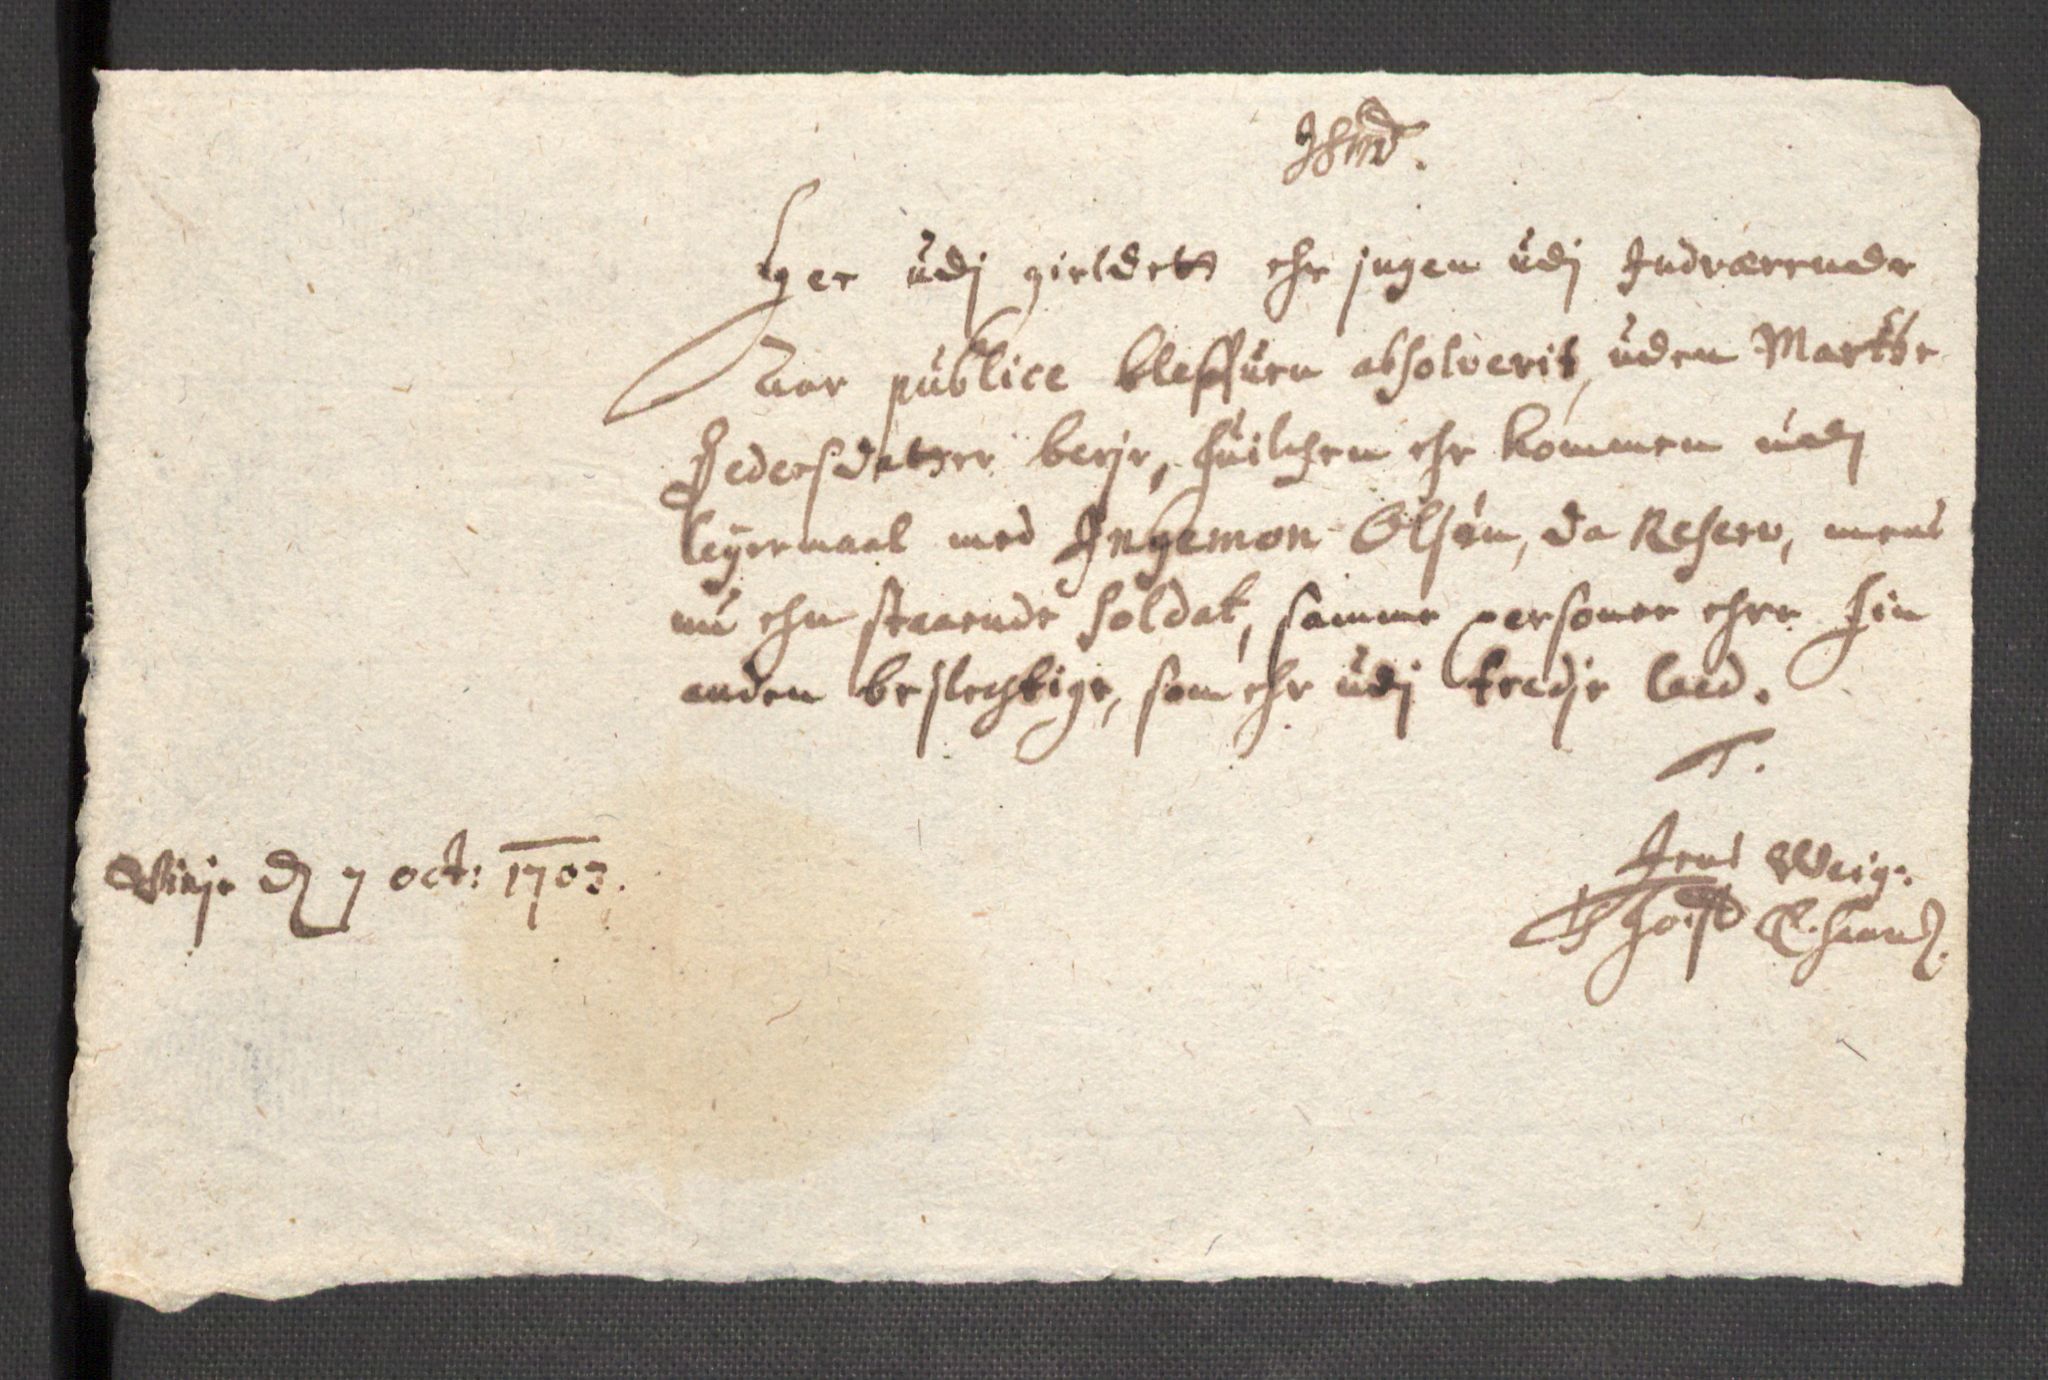 Her udj gieldet ehr jngen udj Indværende
Aar publice blefven absolverit, uden Marthe
Pedersdatter berje, huilchen ehr kommen udj
leyermaal med Ingemon Olsøn, da Reserv, mens
nu ehn staaende soldat, samme personer ehre hin
anden beslechtige, som ehr udj tredje leed.
T.
Jens Weig:
E. haand
Winje d 7 oct: 1703.